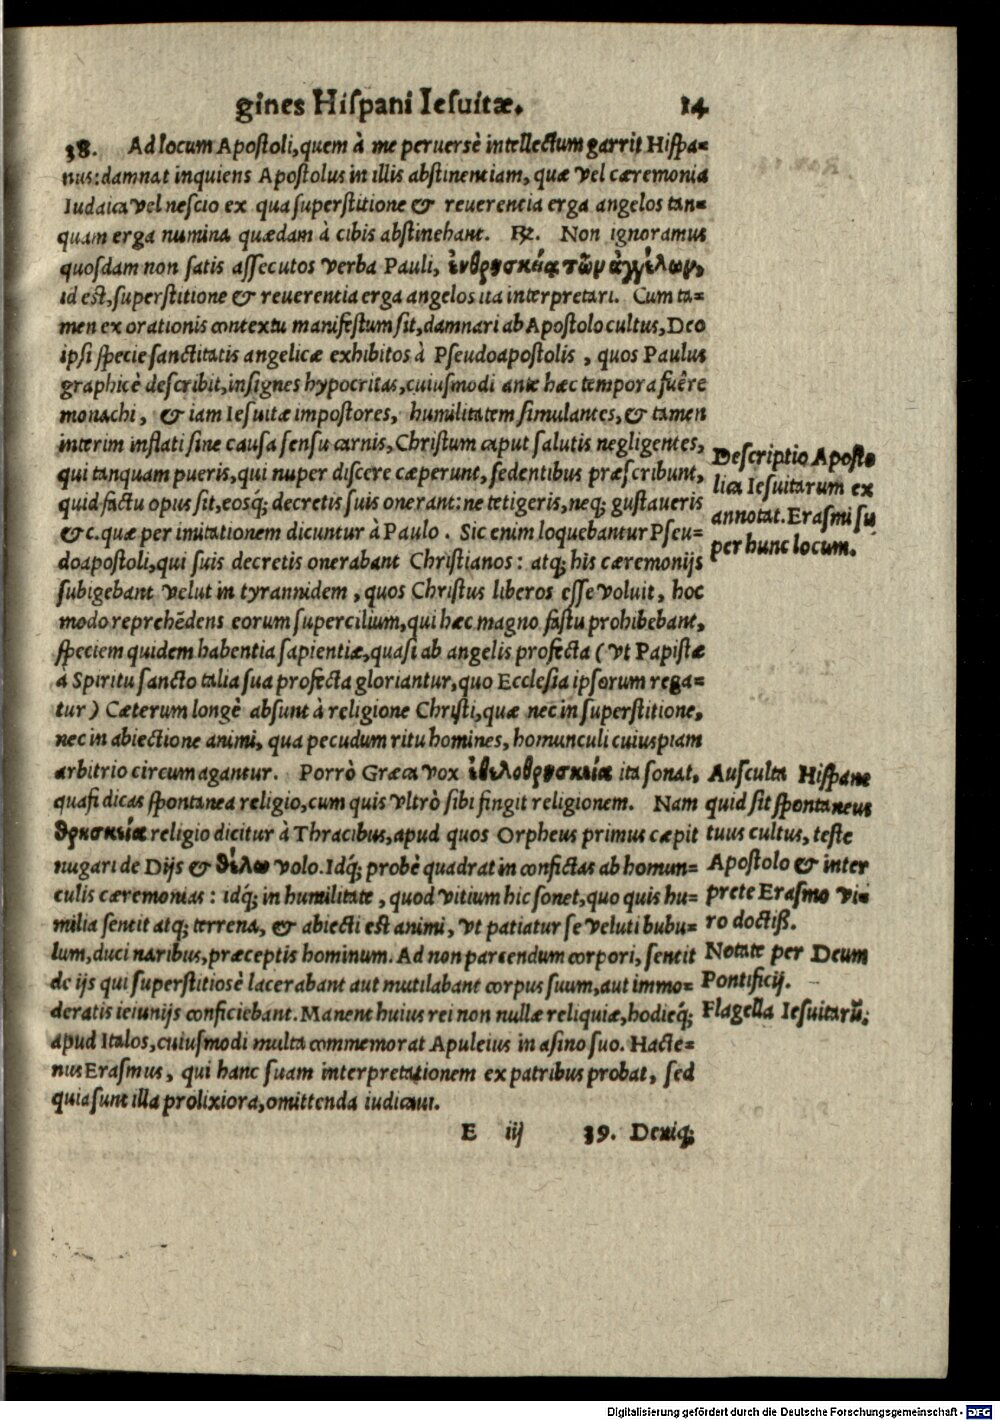 gines Hiſpani Ieſuitæ.
14
38. Ad locum Apoſtoli, quem à me peruersè intellectum garrit Hiſpa=
nus: damnat inquiens Apoſtolus in illis abſtinentiam, quæ vel cæremonia
Iudaica vel neſcio ex qua ſuperſtitione & reuerentia erga angelos tan=
quam erga numina quædam à cibis abſtinebant. ℞. Non ignoramus
quoſdam non ſatis aſſecutos verba Pauli, ἐνθρησκείᾳ τῶν ἀγγέλων,
id eſt, ſuperſtitione & reuerentia erga angelos ita interpretari. Cum ta=
men ex orationis contextu manifeſtum ſit, damnari ab Apoſtolo cultus, Deo
ipſi ſpecie ſanctitatis angelicæ exhibitos à Pſeudoapoſtolis, quos Paulus
graphicè deſcribit, inſignes hypocritas, cuiuſmodi ante hæc tempora fuêre
monachi, & iam Ieſuitæ impoſtores, humilitatem ſimulantes, & tamen
interim inflati ſine cauſa ſenſu carnis, Chriſtum caput ſalutis negligentes,
qui tanquam pueris, qui nuper diſcere cæperunt, ſedentibus præſcribunt,
quid factu opus ſit, eosq; decretis ſuis onerant: ne tetigeris, neq; guſtaueris
&c. quæ per imitationem dicuntur à Paulo. Sic enim loquebantur Pſeu=
doapoſtoli, qui ſuis decretis onerabant Chriſtianos: atq; his cæremonijs
ſubigebant velut in tyrannidem, quos Chriſtus liberos eſſe voluit, hoc
modo reprehēdens eorum ſupercilium, qui hæc magno faſtu prohibebant,
ſpeciem quidem habentia ſapientiæ, quaſi ab angelis profecta (vt Papiſtæ
à Spiritu ſancto talia ſua profecta gloriantur, quo Eccleſia ipſorum rega=
tur) Cæterum longè abſunt à religione Chriſti, quæ nec in ſuperſtitione,
nec in abiectione animi, qua pecudum ritu homines, homunculi cuiuspiam
arbitrio circumagantur. Porrò Græca vox ἐθελοθρησκεία ita ſonat,
quaſi dicas ſpontanea religio, cum quis vltrò ſibi fingit religionem. Nam
θρησκεία religio dicitur à Thracibus, apud quos Orpheus primus cæpit
nugari de Dijs & θέλω volo. Idq; probè quadrat in confictas ab homun=
culis cæremonias: idq; in humilitate, quod vitium hic ſonet, quo quis hu=
milia ſentit atq; terrena, & abiecti eſt animi, vt patiatur ſe veluti bubu=
lum, duci naribus, præceptis hominum. Ad non parcendum corpori, ſentit
de ijs qui ſuperſtitioſè lacerabant aut mutilabant corpus ſuum, aut immo=
deratis ieiunijs conficiebant. Manent huius rei non nullæ reliquiæ, hodieq;
apud Italos, cuiuſmodi multa commemorat Apuleius in aſino ſuo. Hacte=
nus Eraſmus, qui hanc ſuam interpretationem ex patribus probat, ſed
quia ſunt illa prolixiora, omittenda iudicaui.
E iij
39. Deniq;
Deſcriptio Apoſto
lica Ieſuitarum ex
annotat. Eraſmi ſu
per hunc locum.
Auſculta Hiſpane
quid ſit ſpontaneus
tuus cultus, teſte
Apoſtolo & inter
prete Eraſmo vi=
ro doctiß.
Notate per Deum
Pontificij.
Flagella Ieſuitarū;
Digitalisierung gefördert durch die Deutsche Forschungsgemeinschaft - DFG